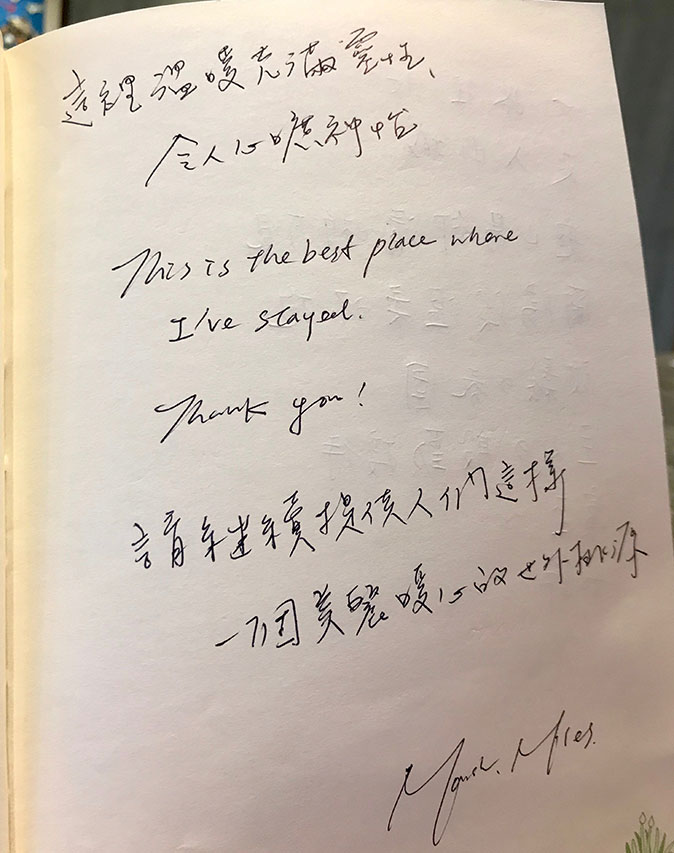 這裡溫暖充滿靈性、
令人心曠神怡
This is the best place where
I've stayed.
Thank you!
請繼續提供人們這樣
一個美麗暖心的世外桃源